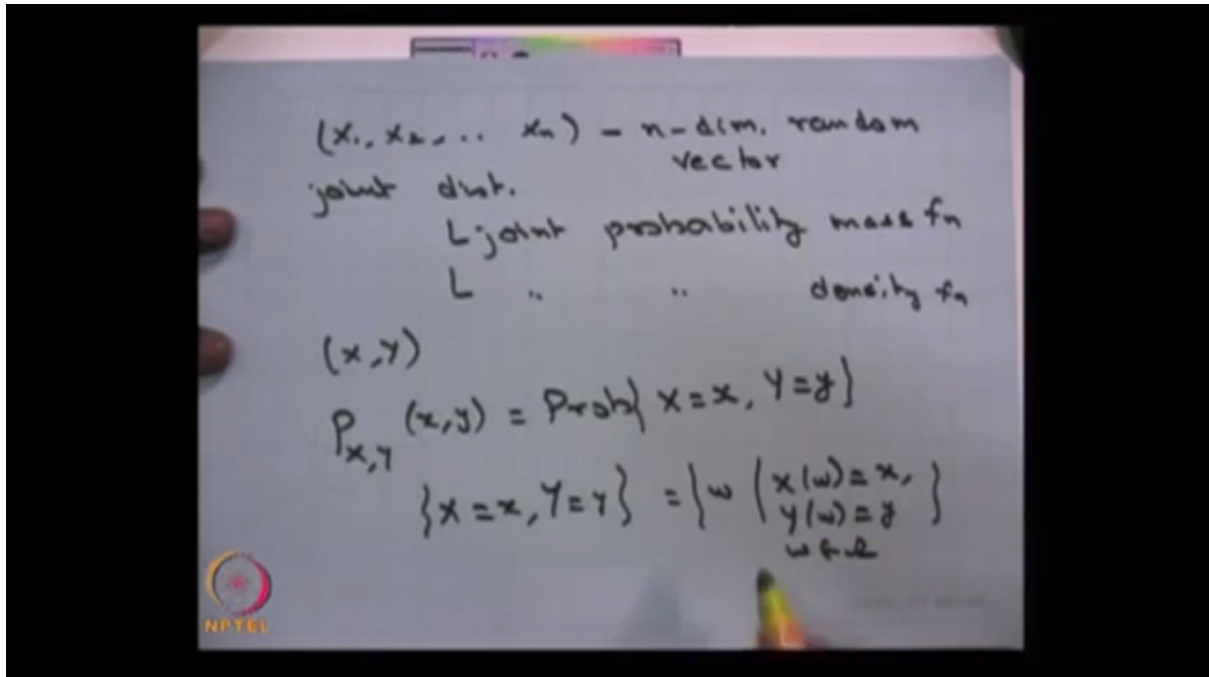 (X₁, X₂, .. Xₙ) - n-dim. random
vector
joint dist.
L joint probability mass fn
L " " density fn
(X,Y)
P_{X,Y} (x,y) = Prob{ X=x, Y=y}
{X=x, Y=y} = {w | X(w)=x,
Y(w)=y }
w ∈ Ω
NPTEL